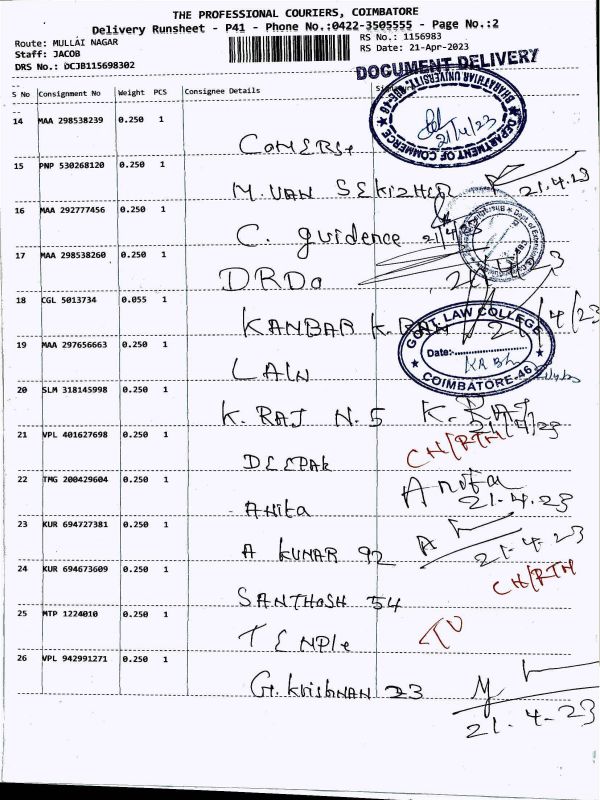 THE PROFESSIONAL COURIERS, COIMBATORE
Delivery Runsheet - P41 - Phone No.:0422-3505555 - Page No.:2
Route: MULLAI NAGAR
RS No.: 1156983
Staff: JACOB
RS Date: 21-Apr-2023
DRS No.: DCJB115698302
DOCUMENT DELIVERY
S No Consignment No Weight PCS Consignee Details
BHARATHIAR UNIVERSITY, CBE-46
DEPARTMENT OF COMMERCE
21/4/23
14 MAA 298538239 0.250 1
COMERS
15 PNP 530268120 0.250 1
M. VAN SEKIZHER 21.4.23
16 MAA 292777456 0.250 1
C. guidence 21/4/23
17 MAA 298538260 0.250 1
DRDO
18 CGL 5013734 0.055 1
KANBAR K. 21/4/23
GOVT. LAW COLLEGE
Date:
COIMBATORE-46
19 MAA 297656663 0.250 1
LAW
20 SLM 318145998 0.250 1
K. RAJ N.5 K. RAJ
21/4/23
21 VPL 401627698 0.250 1
DEEPAK CH/RTH
22 TMG 200429604 0.250 1
Anita Anita
21.4.23
23 KUR 694727381 0.250 1
A KUNAR 92 A
21.4.23
24 KUR 694673609 0.250 1
SANTHOSH 54 CH/RTH
25 MTP 1224010 0.250 1
TENPle
26 VPL 942991271 0.250 1
G. KrishNAN 23
21.4.23